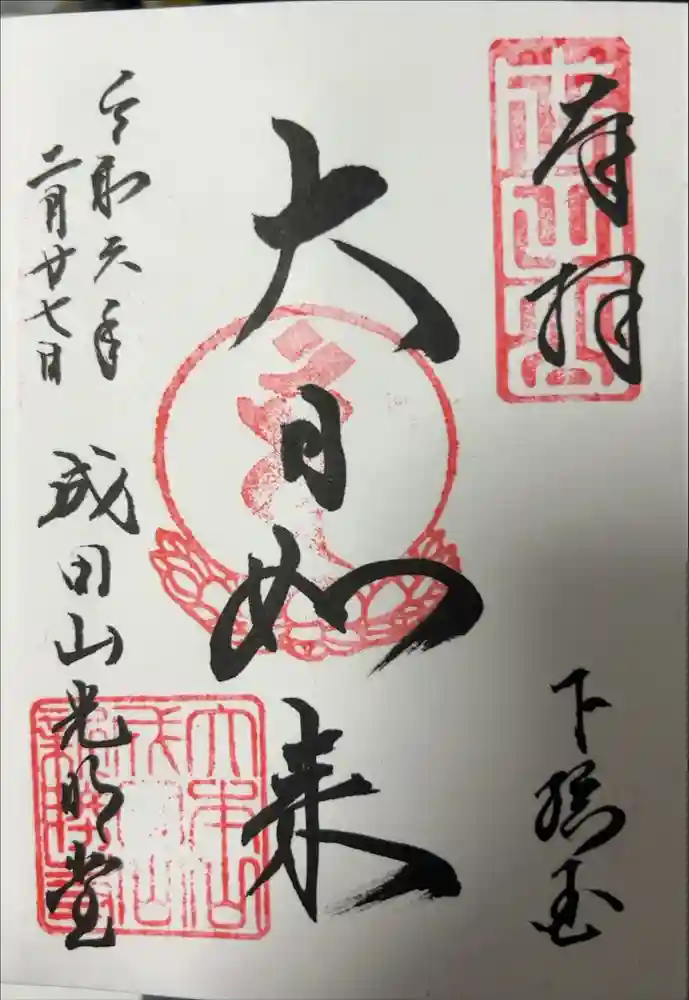 奉拝
下総国
大日如来
成田山光明堂
令和六年
二月廿七日
大本山
成田山
新勝寺